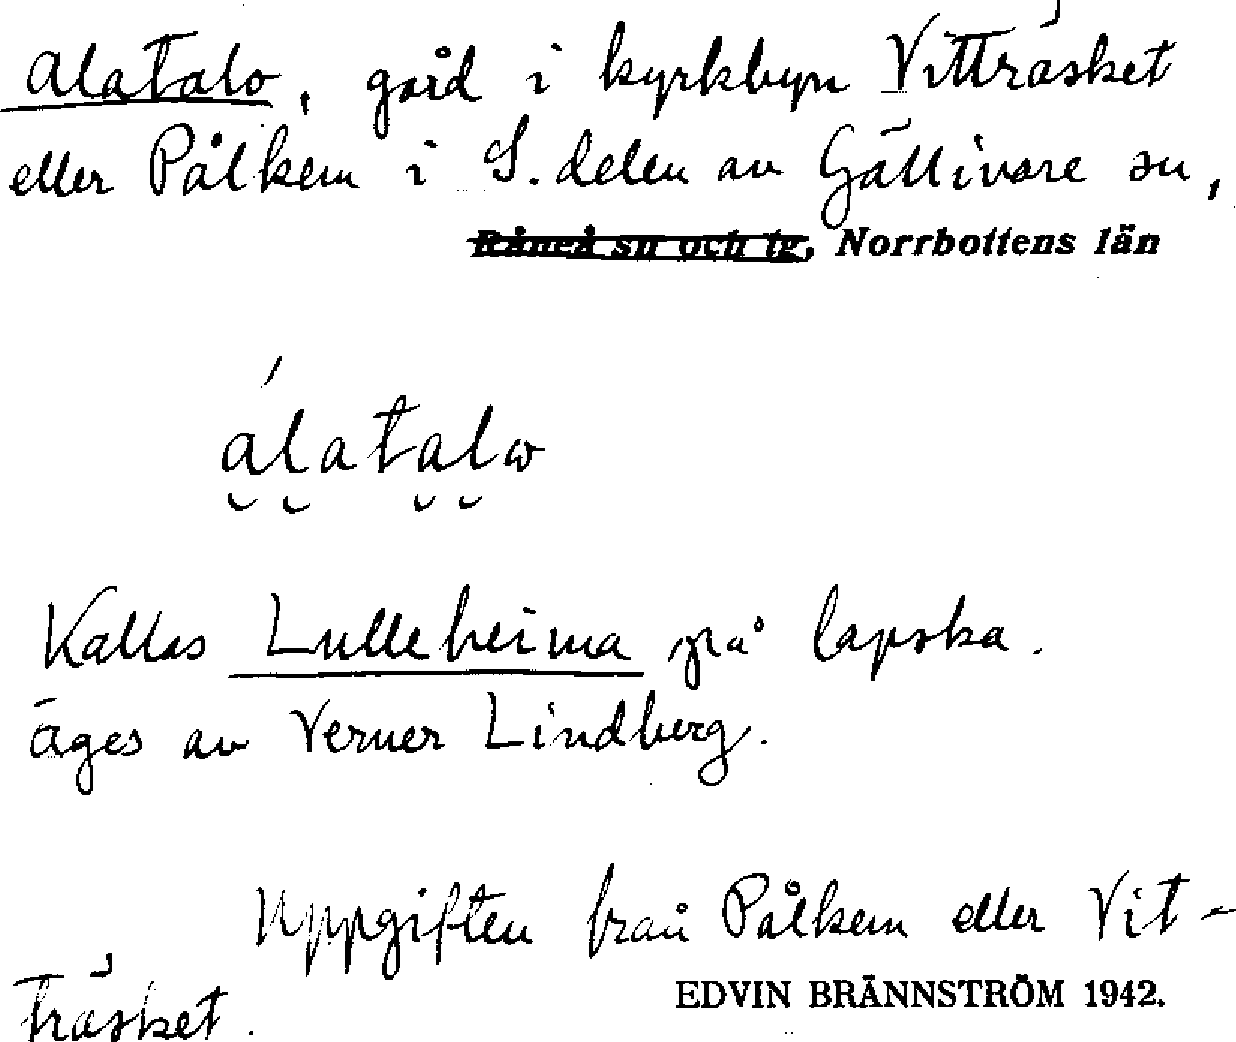 Alatalo, gård i kyrkbyn Vitträsket
eller Pålkem i S. delen av Gällivare sn,
Råneå sn och tg, Norrbottens län
álatalω
Kallas Lulleheima på lapska.
äges av Verner Lindberg.
Uppgiften från Pålkem eller Vit-
träsket.
EDVIN BRÄNNSTRÖM 1942.